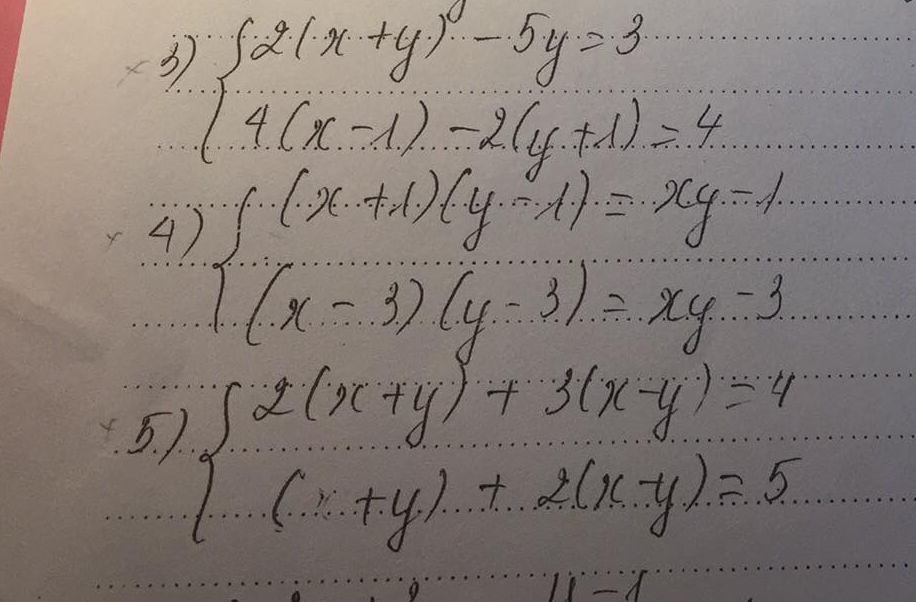 3) { 2(x+y) - 5y = 3
4(x-1) - 2(y+1) = 4
4) { (x+1)(y-1) = xy-1
(x-3)(y-3) = xy-3
5) { 2(x+y) + 3(x-y) = 4
(x+y) + 2(x-y) = 5